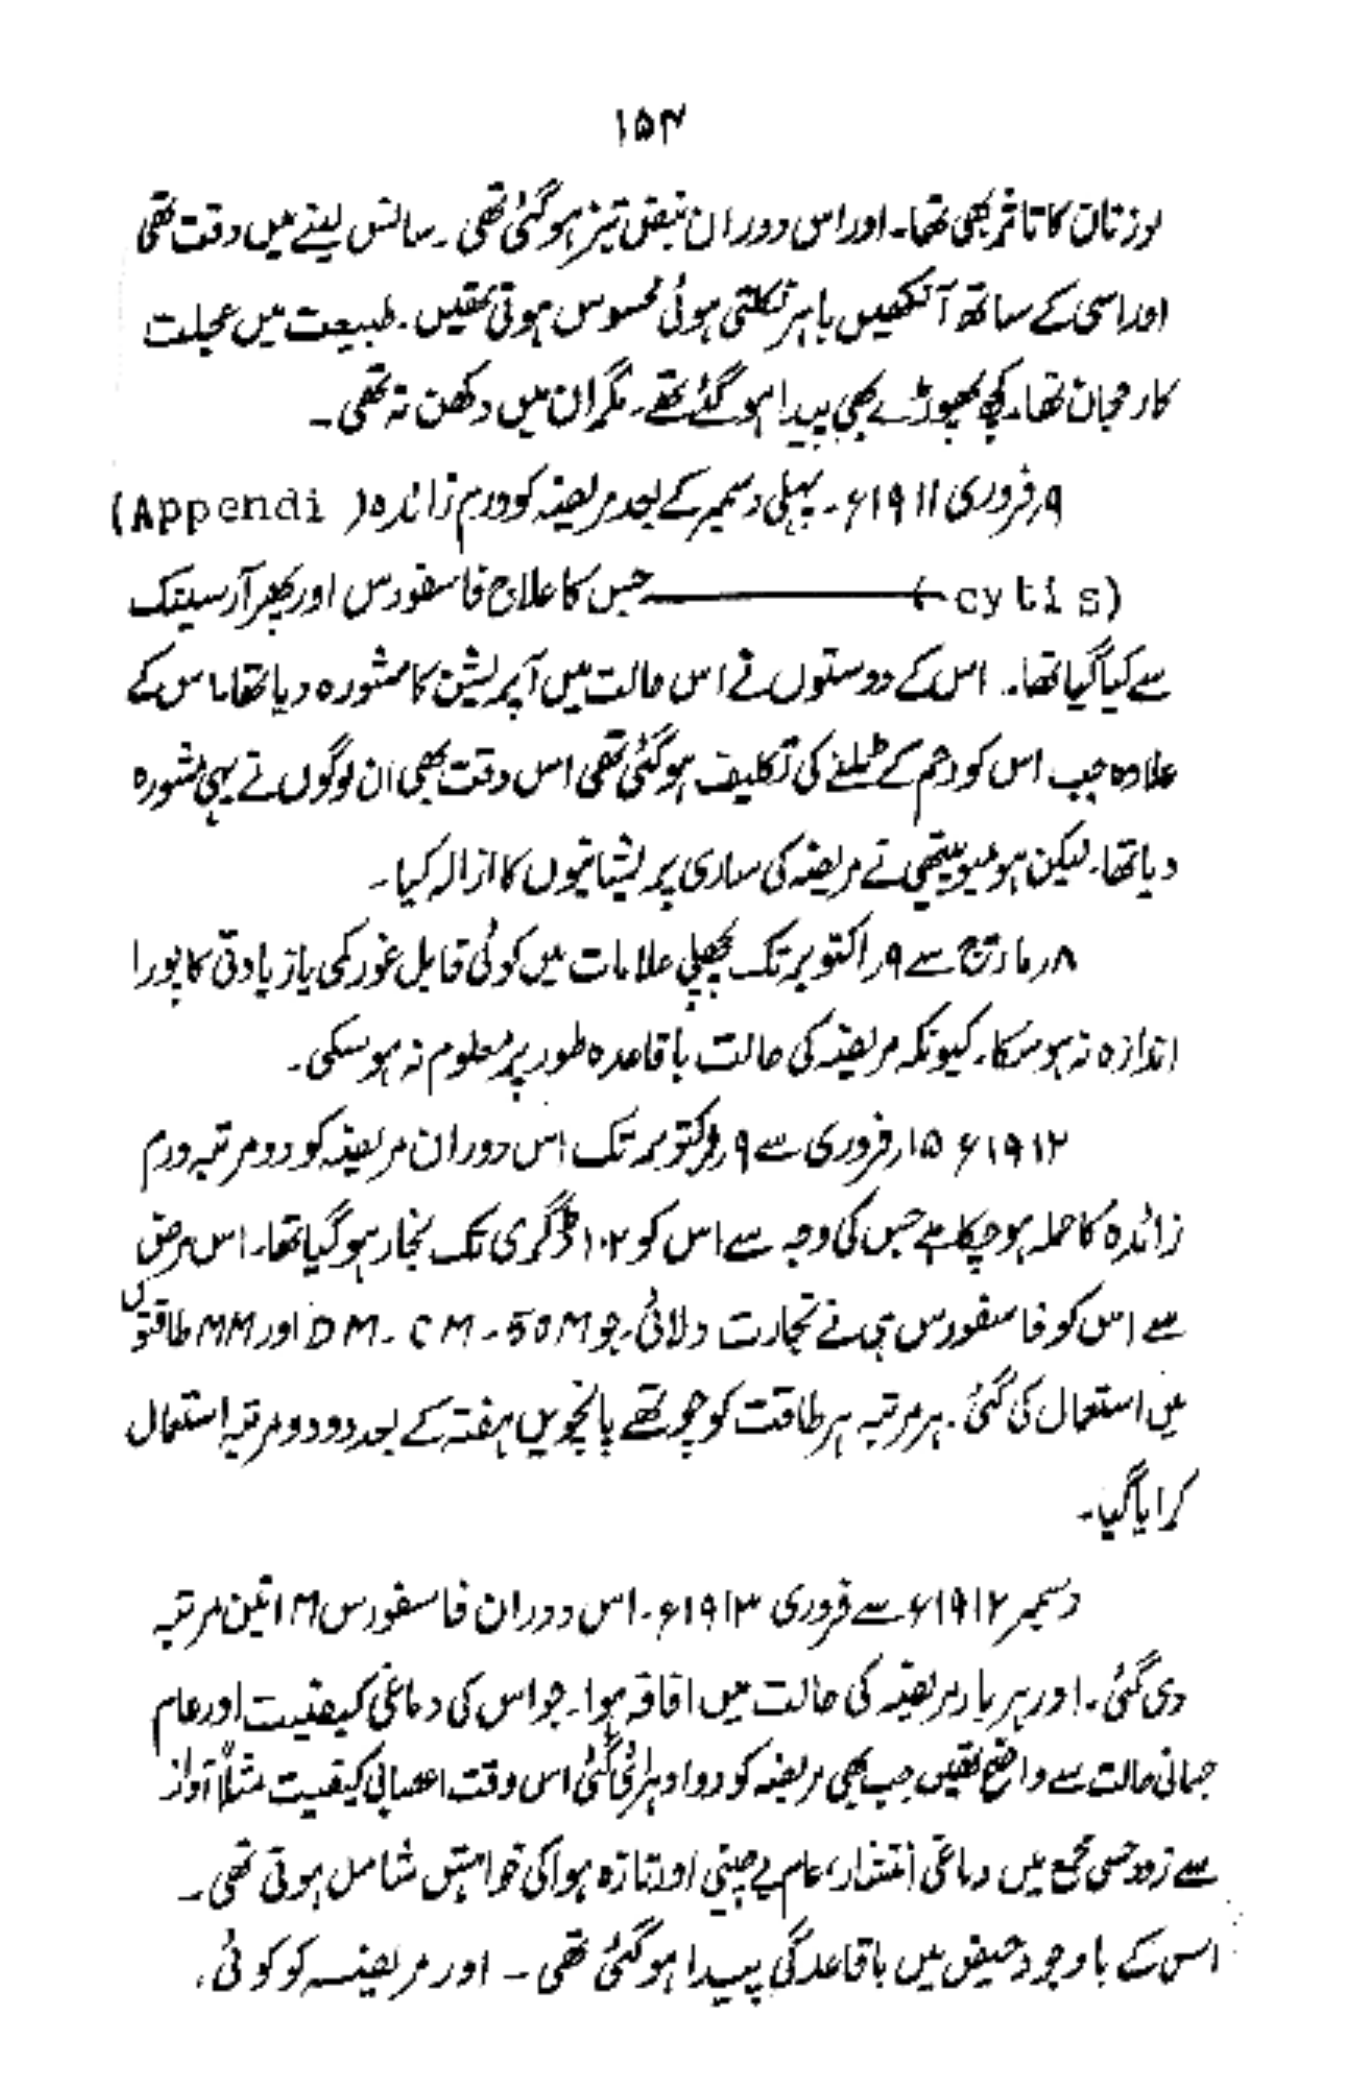 ۱۵۴
لوزتان کا تاثر بھی تھا۔ اور اس دوران نبض تیز ہو گئی تھی ۔ سانس لینے میں دقت تھی
اور اسی کے ساتھ آنکھیں باہر نکلتی ہوئی محسوس ہوتی تھیں ۔ طبیعت میں عجلت
کا رجحان تھا۔ کچھ پھوڑے بھی پیدا ہو گئے تھے ۔ مگر ان میں دکھن نہ تھی ۔
۹ر فروری ۱۹۱۱ء ۔ پہلی دسمبر کے بعد مریضہ کو ورم زائدہ (Appendi)
(cytis) جس کا علاج فاسفورس اور پھر آرسینک
سے کیا گیا تھا۔ اس کے دوستوں نے اس حالت میں آپریشن کا مشورہ دیا تھا۔ اس کے
علاوہ جب اس کو رحم کے ٹلنے کی تکلیف ہو گئی تھی اس وقت بھی ان لوگوں نے یہی مشورہ
دیا تھا۔ لیکن ہومیوپیتھی نے مریضہ کی ساری پریشانیوں کا ازالہ کیا۔
۸ر مارچ سے ۹ر اکتوبر تک پچھلی علامات میں کوئی قابل غور کمی یا زیادتی کا پورا
اندازہ نہ ہو سکا۔ کیونکہ مریضہ کی حالت باقاعدہ طور پر معلوم نہ ہو سکی ۔
۱۹۱۲ء ۱۵ر فروری سے ۹ر اکتوبر تک اس دوران مریضہ کو دو مرتبہ ورم
زائدہ کا حملہ ہو چکا ہے جس کی وجہ سے اس کو ۱۰۲ ڈگری تک بخار ہو گیا تھا۔ اس مرض
سے اس کو فاسفورس ہی نے نجات دلائی۔ جو 50M - CM - DM اور MM طاقتوں
میں استعمال کی گئی ۔ ہر مرتبہ ہر طاقت کو چوتھے پانچویں ہفتہ کے بعد دو دو مرتبہ استعمال
کرایا گیا۔
دسمبر ۱۹۱۲ء سے فروری ۱۹۱۳ء ۔ اس دوران فاسفورس 1M تین مرتبہ
دی گئی ۔ اور ہر بار مریضہ کی حالت میں افاقہ ہوا۔ جو اس کی دماغی کیفیت اور عام
جسمانی حالت سے واضح تھیں جب بھی مریضہ کو دوا دہرائی گئی اس وقت اعصابی کیفیت مثلاً آواز
سے زود حسی مجمع میں دماغی انتشار، عام بے چینی اور تازہ ہوا کی خواہش شامل ہوتی تھی ۔
اس کے باوجود حیض میں باقاعدگی پیدا ہو گئی تھی ۔ اور مریضہ کو کوئی